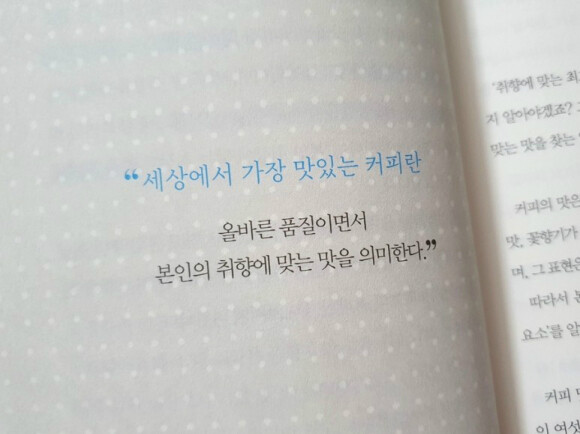 “세상에서 가장 맛있는 커피란
올바른 품질이면서
본인의 취향에 맞는 맛을 의미한다.”
'취향에 맞는 최
지 알아야겠죠?
맞는 맛을 찾는
커피의 맛은
맛, 꽃향기가
며, 그 표현은
따라서 본
요소'를 알
커피
이 여섯